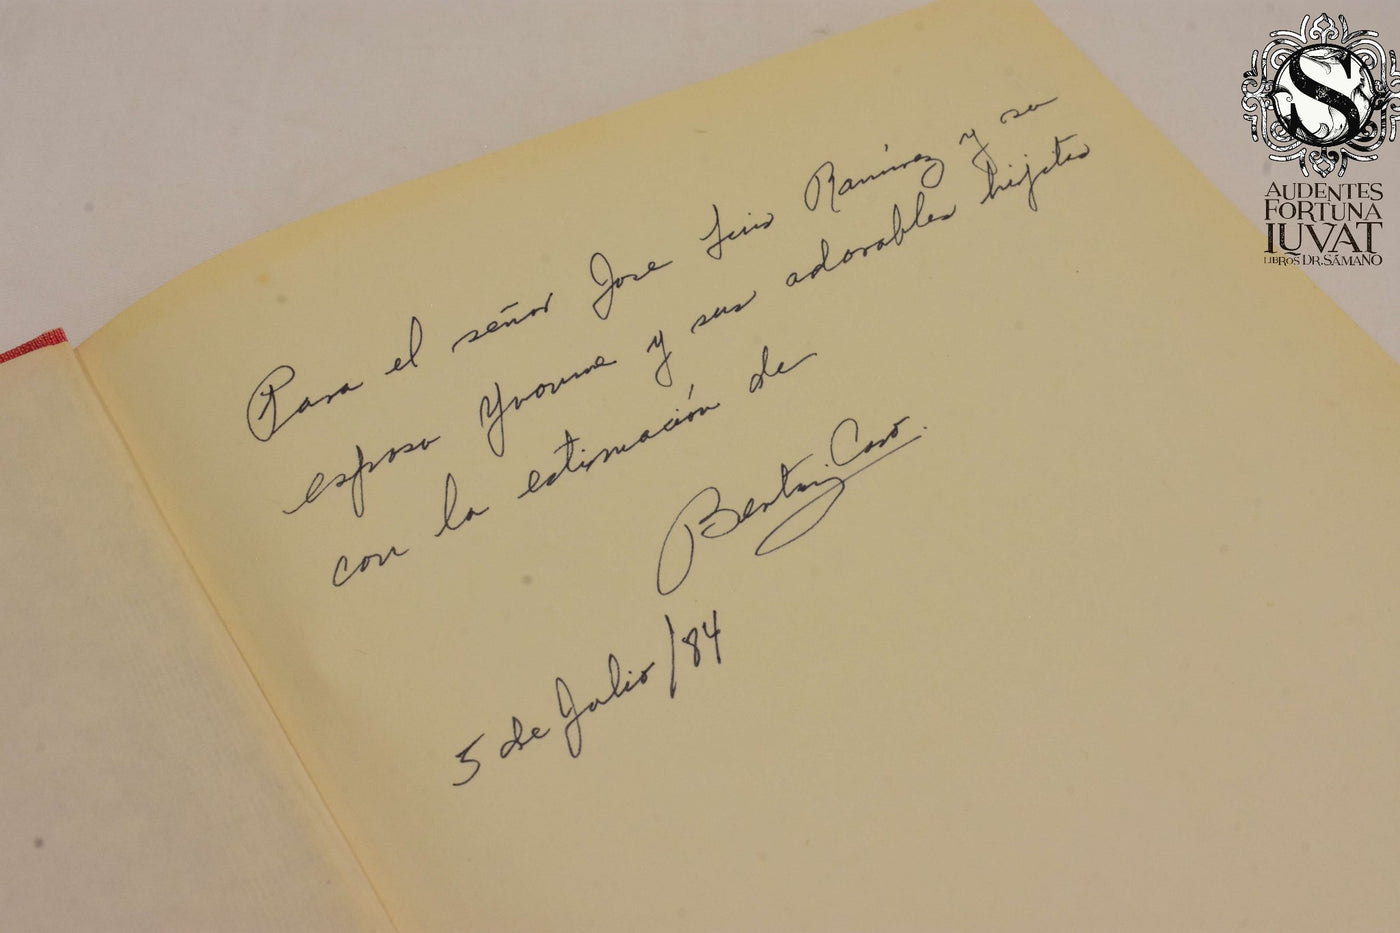 Para el señor Jose Luis Ramírez y su
esposa Yvonne y sus adorables hijitos
con la estimación de
Beatriz Caso.
5 de Julio/84
S
AUDENTES
FORTUNA
IUVAT
LIBROS DR. SÁMANO